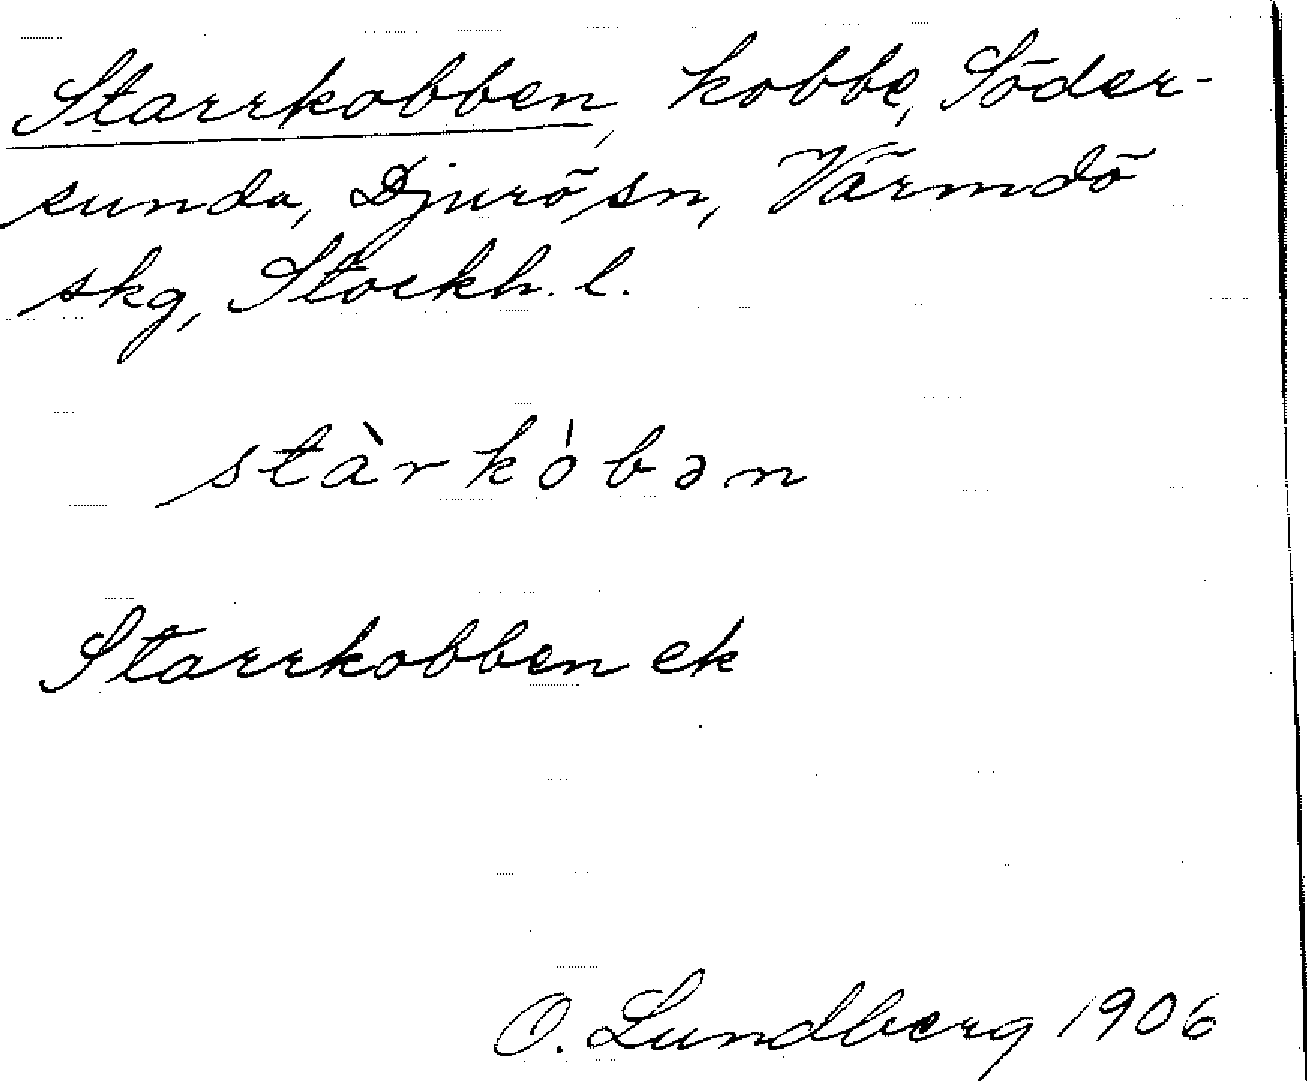 Starrkobben, kobbe, Söder-
sunda, Djurö sn, Värmdö
skg, Stockh. l.
stàrkòbən
Starrkobben ek
O. Lundberg 1906